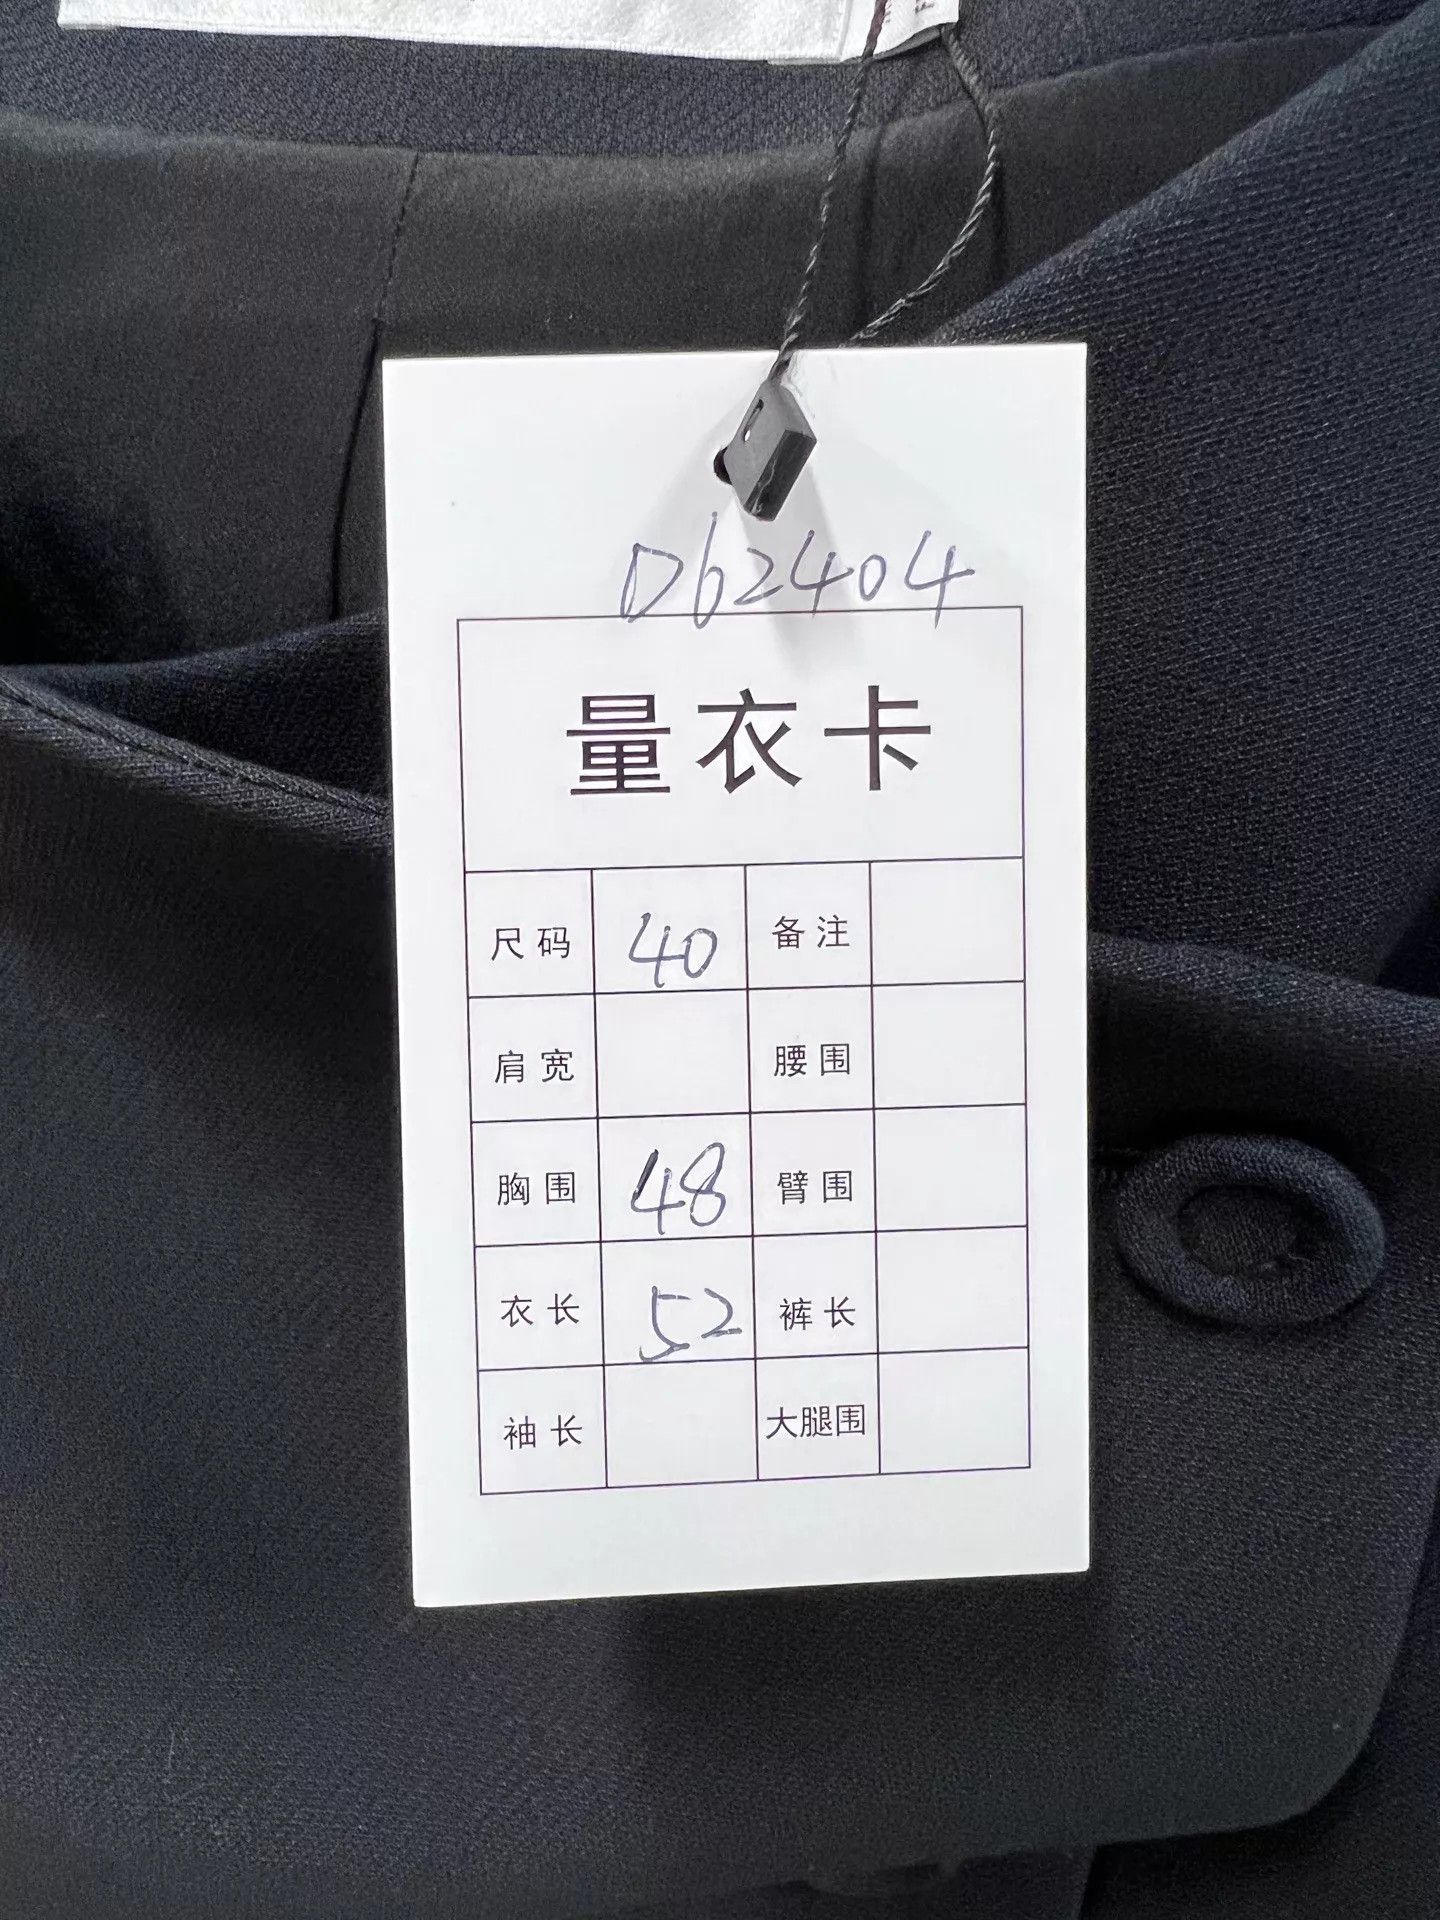 D62404
量衣卡
尺码 40 备注
肩宽 腰围
胸围 48 臂围
衣长 52 裤长
袖长 大腿围